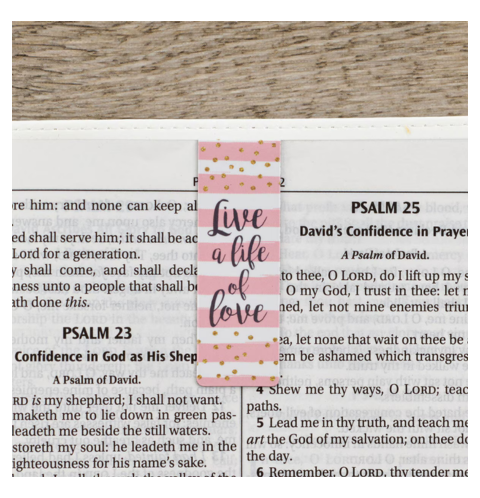 Live
a life
of
love
re him: and none can keep
ed shall serve him; it shall be
Lord for a generation.
shall come, and shall
ness unto a people that shall
ath done this.
PSALM 23
Confidence in God as His
A Psalm of David.
RD is my shepherd; I shall not want.
maketh me to lie down in green pas-
leadeth me beside the still waters.
storeth my soul: he leadeth me in the
ighteousness for his name's sake.
PSALM 25
David's Confidence in Prayer
A Psalm of David.
to thee, O LORD, do I lift up my s
O my God, I trust in thee: let
ned, let not mine enemies
ea, let none that wait on thee be
em be ashamed which transgres
4 Shew me thy ways, O LORD; teac
paths.
5 Lead me in thy truth, and teach me
art the God of my salvation; on thee do
the day.
6 Remember, O LORD, thy tender me